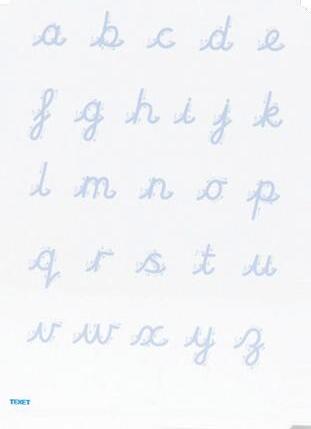 a b c d e
f g h i j k
l m n o p
q r s t u
v w x y z
TEXET